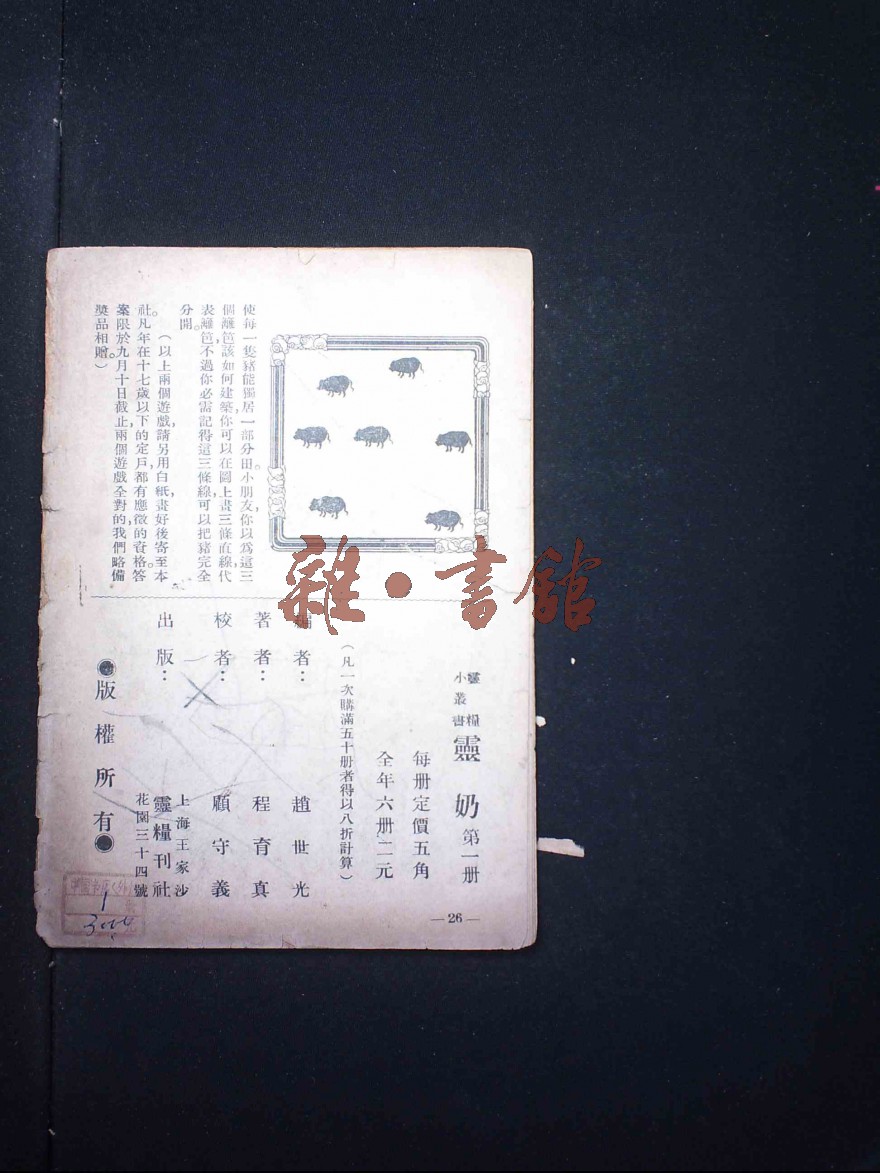 使每一隻豬能獨居一部分田。小朋友,你以爲這三
個籬笆,該如何建築,你可以在圖上畫三條直線,代
表籬笆,不過你必需記得這三條線,可以把豬完全
分開。
(以上兩個遊戲,請另用白紙,畫好後寄至本
社。凡年在十七歲以下的定戶,都有應徵的資格。答
案限於九月十日截止,兩個遊戲全對的,我們略備
獎品相贈。)
靈糧
小叢書
靈奶 第一册
每册定價五角
全年六册二元
(凡一次購滿五十册者得以八折計算)
編者:趙世光
著者:程育真
校者:顧守義
出版:
上海王家沙
靈糧刊社
花園三十四號
●版權所有●
—26—
雜·書館
1
3000